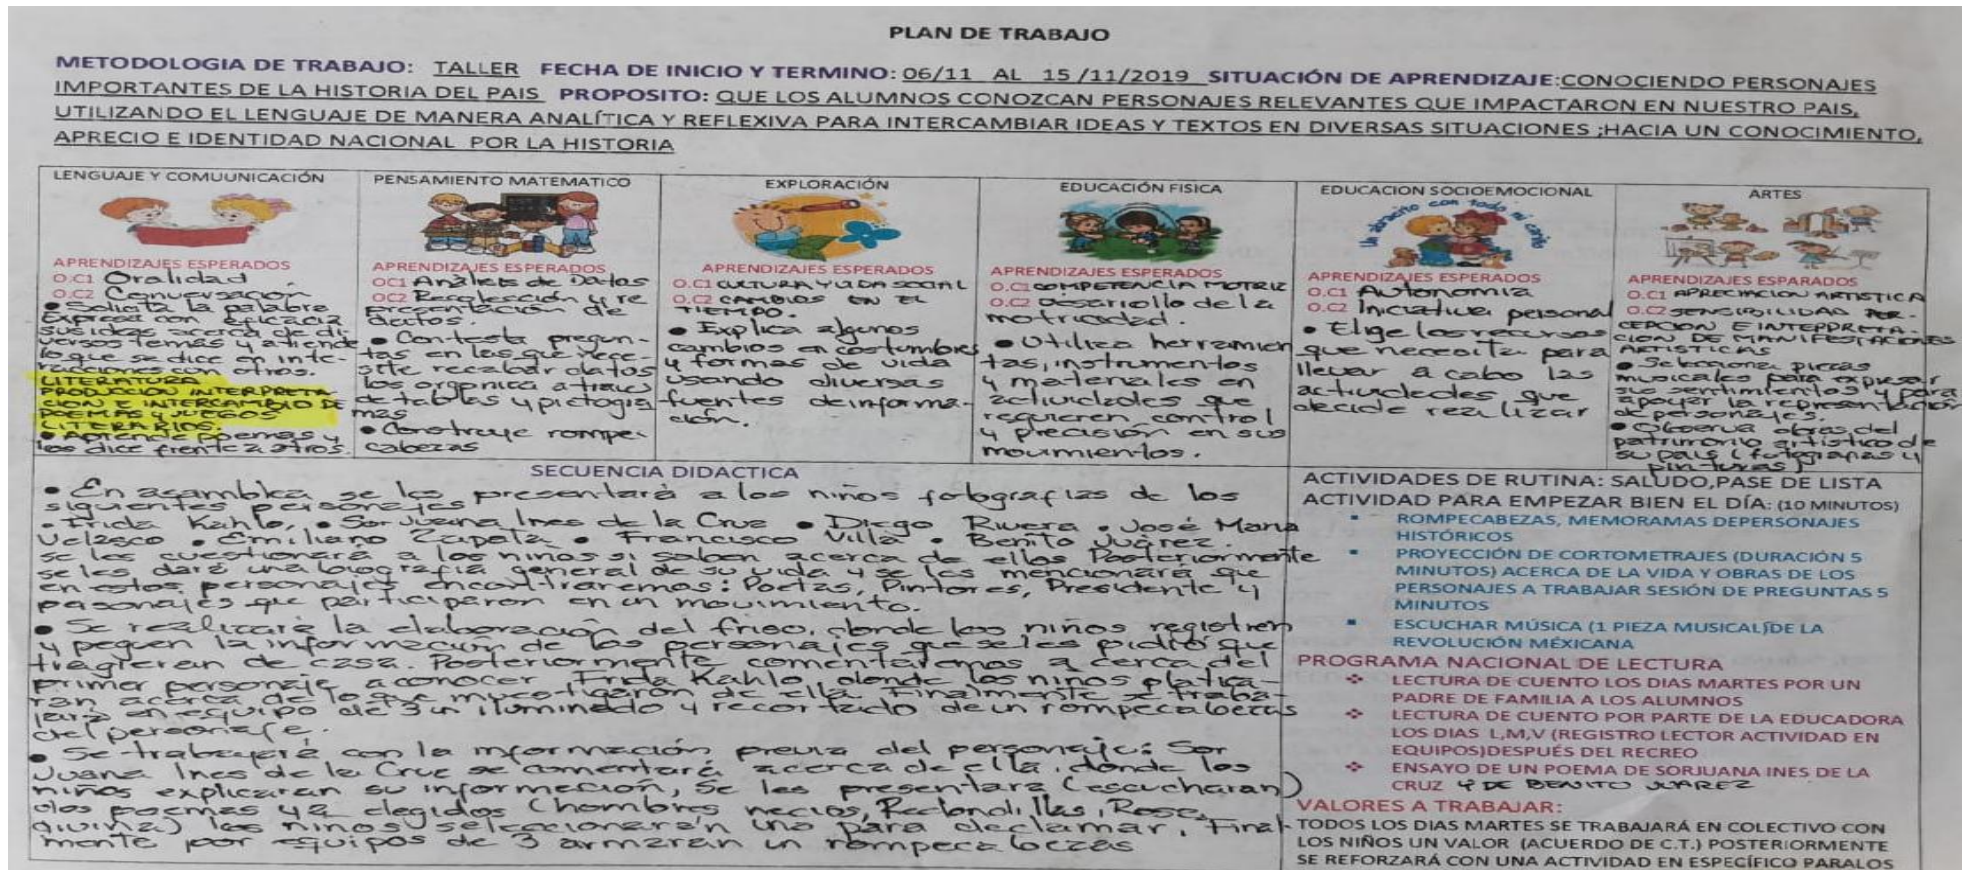 PLAN DE TRABAJO
METODOLOGIA DE TRABAJO: TALLER FECHA DE INICIO Y TERMINO: 06/11 AL 15/11/2019 SITUACIÓN DE APRENDIZAJE:CONOCIENDO PERSONAJES
IMPORTANTES DE LA HISTORIA DEL PAIS PROPOSITO: QUE LOS ALUMNOS CONOZCAN PERSONAJES RELEVANTES QUE IMPACTARON EN NUESTRO PAIS,
UTILIZANDO EL LENGUAJE DE MANERA ANALÍTICA Y REFLEXIVA PARA INTERCAMBIAR IDEAS Y TEXTOS EN DIVERSAS SITUACIONES ;HACIA UN CONOCIMIENTO,
APRECIO E IDENTIDAD NACIONAL POR LA HISTORIA
LENGUAJE Y COMUUNICACIÓN
APRENDIZAJES ESPERADOS
O.C1 Oralidad
O.C2 Conversación
• Solicita la palabra
Expresa con eficacia
sus ideas acerca de di
versos temas y atiende
lo que se dice en inte-
racciones con otros.
LITERATURA
PRODUCCION INTERPRETA
CION E INTERCAMBIO DE
POEMAS Y JUEGOS
LITERARIOS.
• Aprende poemas y
los dice frente a otros.
PENSAMIENTO MATEMATICO
APRENDIZAJES ESPERADOS
OC1 Análisis de Datos
OC2 Recolección y re
presentación de
datos.
• Contesta pregun-
tas en las que nece-
site recabar datos
los organica a traves
de tablas y pictogra
mas
• Construye rompe-
cabezas
EXPLORACIÓN
APRENDIZAJES ESPERADOS
O.C1 CULTURA Y VIDA SOCIAL
O.C2 CAMBIOS EN EL
TIEMPO.
• Explica algunos
cambios en costumbres
y formas de vida
usando diversas
fuentes de informa-
ción.
EDUCACIÓN FISICA
APRENDIZAJES ESPERADOS
O.C1 COMPETENCIA MOTRIZ
O.C2 Desarrollo de la
motricidad.
• Utiliza herramien
tas, instrumentos
y materiales en
actividades que
requieren control
y precisión en sus
movimientos.
EDUCACION SOCIOEMOCIONAL
Un abracito con todo mi cariño
APRENDIZAJES ESPERADOS
O.C1 Autonomia
O.C2 Iniciativa personal
• Elige los recursos
que necesita para
llevar a cabo las
actividades que
decide realizar
ARTES
APRENDIZAJES ESPARADOS
O.C1 APRECIACION ARTISTICA
O.C2 SENSIBILIDAD PER-
CEPCION E INTERPRETA-
CION DE MANIFESTACIONES
ARTISTICAS
• Selecciona piezas
musicales para expresar
sus sentimientos y para
apoyar la representación
de personajes.
• Observa obras del
patrimonio artistico de
su pais (fotografias y
pinturas)
SECUENCIA DIDACTICA
• En asamblea se les presentará a los niños fotografias de los
siguientes personajes
• Frida Kahlo, • Sor Juana Ines de la Cruz • Diego Rivera • José Maria
Velasco • Emiliano Zapata • Francisco Villa • Benito Juárez.
se les cuestionará a los niños si saben acerca de ellos Posteriormente
se les dará una biografia general de su vida y se les mencionará que
en estos personajes encontraremos: Poetas, Pintores, Presidente y
personajes que participaron en un movimiento.
• Se realizará la elaboración del friso, donde los niños registren
y peguen la información de los personajes que se les pidió que
tragieran de casa. Posteriormente comentaremos a cerca del
primer personaje a conocer Frida Kahlo, donde los niños platica-
ran acerca de lo que investigarón de ella Finalmente se traba-
jará en equipo de 3 un iluminado y recortado de un rompecabezas
del personaje.
• Se trabajará con la información previa del personaje: Sor
Juana Ines de la Cruz se comentará acerca de ella, donde los
niños explicaran su información, se les presentara (escucharan)
los poemas ya elegidos (hombres necios, Redondillas, Rosa
divina) los niños seleccionarán uno para declamar, Final-
mente por equipos de 3 armaran un rompecabezas
ACTIVIDADES DE RUTINA: SALUDO,PASE DE LISTA
ACTIVIDAD PARA EMPEZAR BIEN EL DÍA: (10 MINUTOS)
▪ ROMPECABEZAS, MEMORAMAS DEPERSONAJES
HISTÓRICOS
▪ PROYECCIÓN DE CORTOMETRAJES (DURACIÓN 5
MINUTOS) ACERCA DE LA VIDA Y OBRAS DE LOS
PERSONAJES A TRABAJAR SESIÓN DE PREGUNTAS 5
MINUTOS
▪ ESCUCHAR MÚSICA (1 PIEZA MUSICAL)DE LA
REVOLUCIÓN MÉXICANA
PROGRAMA NACIONAL DE LECTURA
❖ LECTURA DE CUENTO LOS DIAS MARTES POR UN
PADRE DE FAMILIA A LOS ALUMNOS
❖ LECTURA DE CUENTO POR PARTE DE LA EDUCADORA
LOS DIAS L,M,V (REGISTRO LECTOR ACTIVIDAD EN
EQUIPOS)DESPUÉS DEL RECREO
❖ ENSAYO DE UN POEMA DE SORJUANA INES DE LA
CRUZ Y DE BENITO JUAREZ
VALORES A TRABAJAR:
TODOS LOS DIAS MARTES SE TRABAJARÁ EN COLECTIVO CON
LOS NIÑOS UN VALOR (ACUERDO DE C.T.) POSTERIORMENTE
SE REFORZARÁ CON UNA ACTIVIDAD EN ESPECÍFICO PARALOS